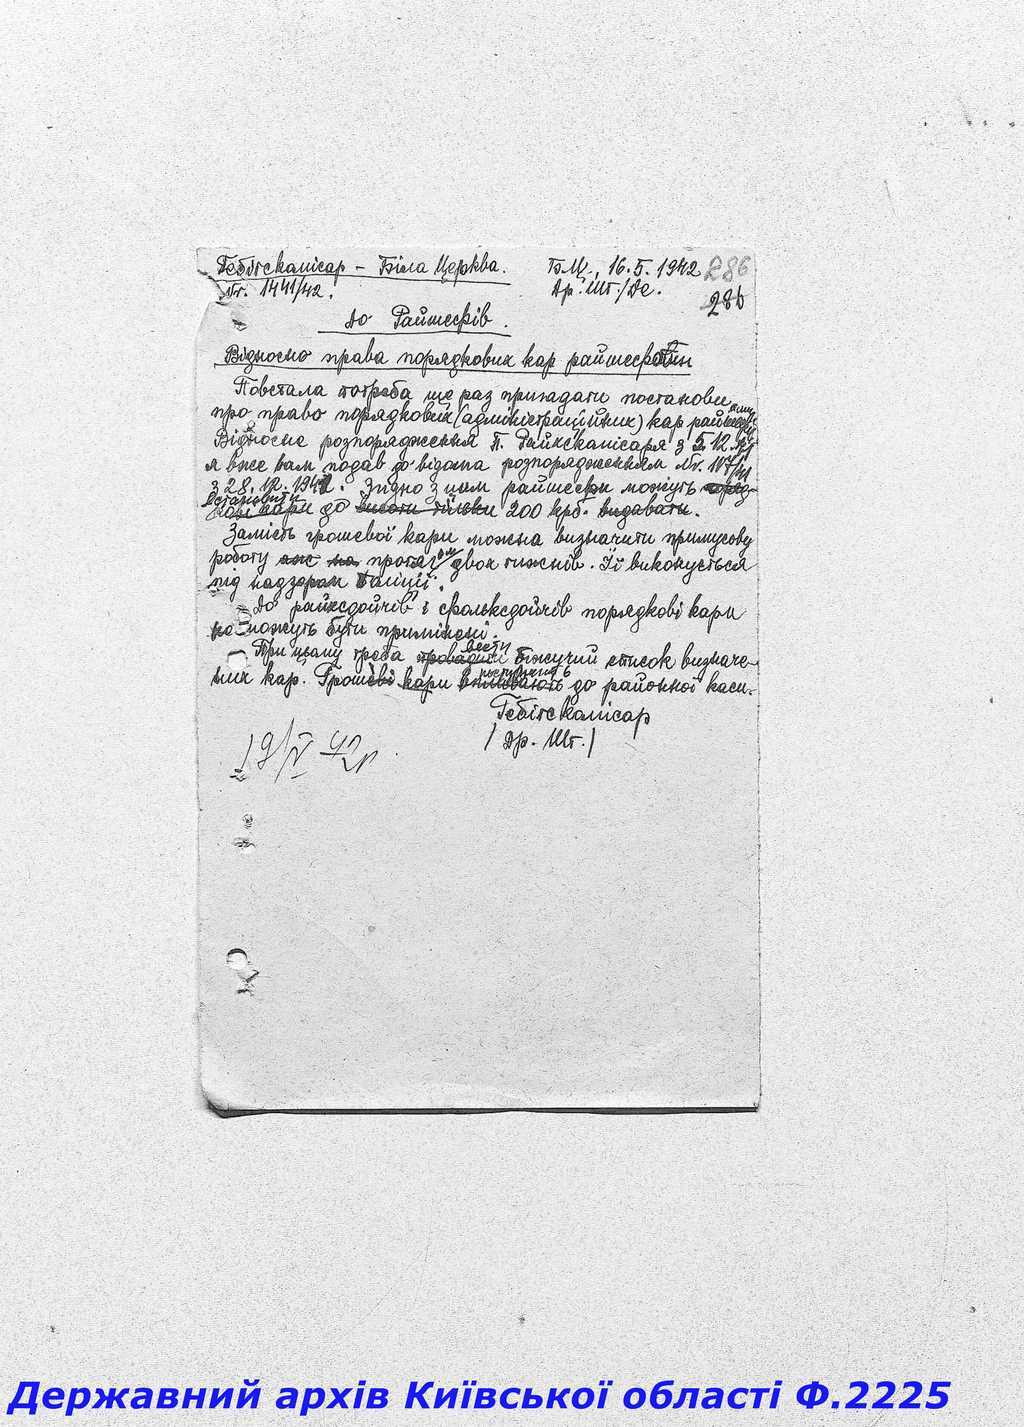 Гебітскомісар – Біла Церква. Б.Ц., 16.5.1942 286
Nr. 1441/42. Др. Шт./Де. 286
До Райшефів.
Відносно права порядкових кар райшефами
Повстала потреба ще раз пригадати постанови
про право порядкових (адміністраційних) кар
Відносне розпорядження П. Райхскомісаря з 5.12.
я вже вам подав до відома розпорядженням Nr. 117/41
з 28.12.1941. Згідно з цим райшефи можуть поряд-
встановити
кари до висоти тільки 200 крб. видавати.
Замість грошевої кари можна визначити примусову
роботу аж на протягом двох тижнів. Її виконується
під надзором поліції.
До райхсдойчів і фольксдойчів порядкові кари
не можуть бути примінені.
вести
При цьому треба провадити біжучий список визначе-
поступають
них кар. Грошеві кари впливають до районної каси.
Гебітскомісар
/Др. Шт./
19/V 42р.
Державний архів Київської області Ф.2225